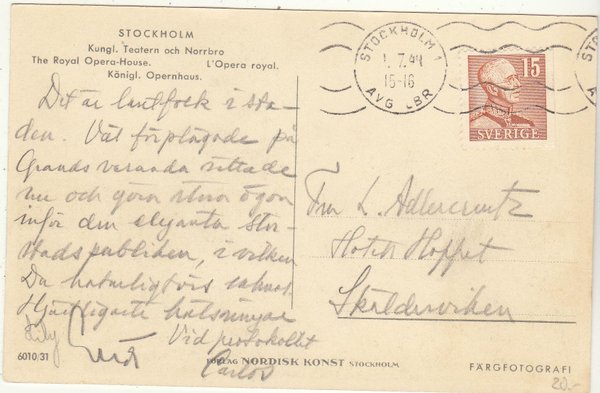 STOCKHOLM
Kungl. Teatern och Norrbro
The Royal Opera-House. L'Opera royal.
Königl. Opernhaus.
Det är lantfolk i sta-
den. Väl förplägade på
Grands veranda sittade
nu och göra stora ögon
inför den eleganta stor-
stadspubliken, i vilken
Du naturligtvis saknas
Hjärtligaste hälsningar
Vid protokollet
Carlos
6010/31
FÖRLAG NORDISK KONST STOCKHOLM
STOCKHOLM 1
1.7.44
15-16
AVG LBR
15
SVERIGE
Fru L. Adlercreutz
Hotell Hoppet
Skälderviken
FÄRGFOTOGRAFI
20.-